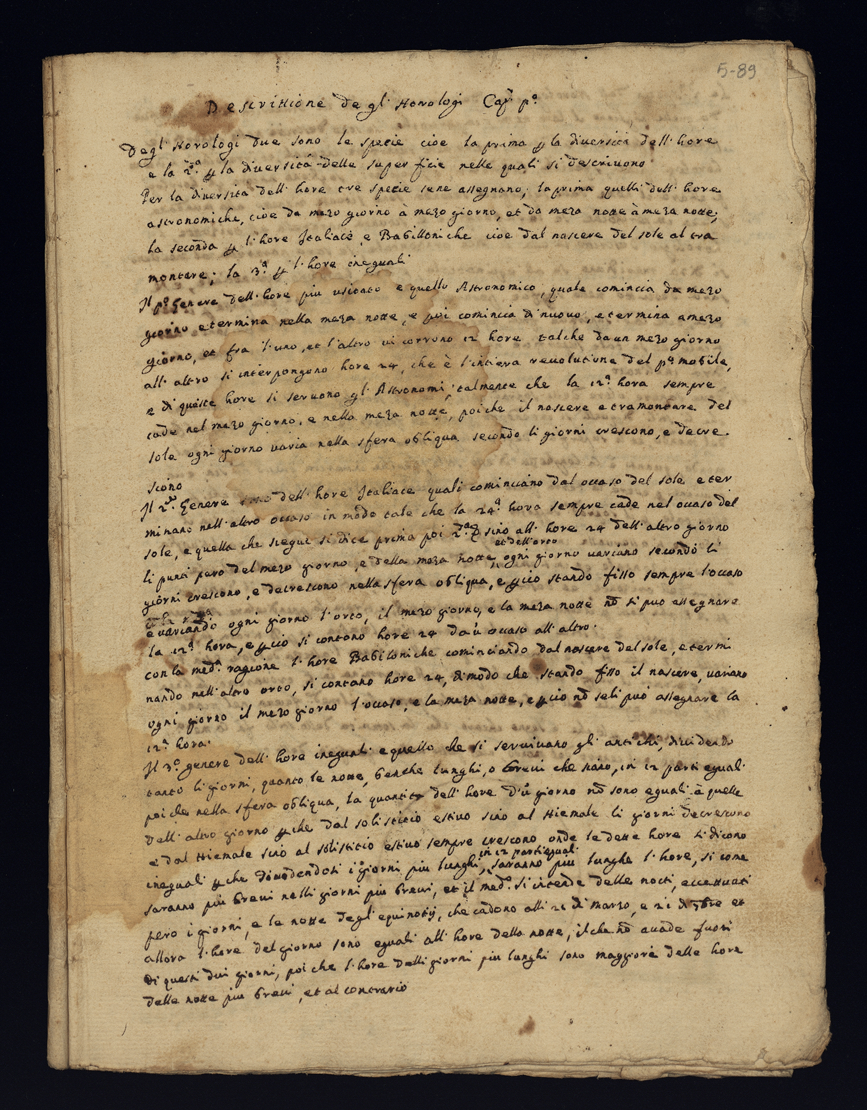 5-89
Descrittione degl' Horologi Cap.º pº
Degl' Horologi due sono le spezie cioe la prima p la diversità dell' hore
e la 2.ª p la diversità delle superficie nelle quali si descrivono
Per la diversità dell' hore tre spezie sene assegnano; la prima quelli dell' hore
astronomiche, cioe da mezo giorno à mezo giorno, et da meza notte à meza notte;
la seconda p l' hore Italiace e Babilloniche cioe dal nascere del sole al tra
montare; la 3ª p l' hore ineguali
Il pº Genere dell' hore piu usitato e quello Astronomico, quale comincia da mezo
giorno e termina nella meza notte, e poi comincia di nuovo, e termina a mezo
giorno, et fra l' uno, et l' altro vi corrono 12 hore talche da un mezo giorno
all' altro si interpongono hore 24, che è l' intiera revolutione del pº mobile,
e di queste hore si servono gl' Astronomi, talmente che la 12ª hora sempre
cade nel mezo giorno, e nella meza notte, poiche il nascere e tramontare del
sole ogni giorno varia nella sfera obliqua secondo li giorni crescono, e decre
scono
Il 2º Genere dell' hore Italiace quali cominciano dal occaso del sole e ter
minano nell' altro occaso in modo tale che la 24ª hora sempre cade nel occaso del
sole, e quella che siegue si dice prima poi 2ª sino all' hore 24 dell' altro giorno
et dell' orto
li punti pero del mezo giorno, e della meza notte, ogni giorno variano secondo li
giorni crescono, e decrescono nella sfera obliqua, e pciò stando fisso sempre l' occaso
e variando ogni giorno l' orto, il mezo giorno, e la meza notte nō si puo assegnare
la 12ª hora, e pciò si contano hore 24 da ū occaso all' altro.
con la med.ª ragione l' hore Babiloniche cominciando dal nascere del sole, e termi
nando nell' altro orto, si contano hore 24, di modo che stando fisso il nascere, variano
ogni giorno il mezo giorno l' occaso, e la meza notte, e pciò nō seli può assegnare la
12ª hora.
Il 3º genere dell' hore ineguali e quello che si servivano gli antichi, dividendo
tanto li giorni, quanto le notte, benche lunghi, o brevi che siano, in 12 parti eguali
poiche nella sfera obliqua, la quantità dell' hore d' ū giorno nō sono eguali à quelle
dell' altro giorno p che dal solistitio estivo sino al Hiemale li giorni decrescono
e dal Hiemale sino al solistitio estivo sempre crescono onde le dette hore si dicono
in 12 parti eguali
ineguali p che dividendosi i giorni più lunghi, saranno piu lunghe l' hore, si come
saranno piu brevi nelli giorni più brevi, et il med.º si intende delle nocti, eccettuati
pero i giorni, e le notte degl' equinotij, che cadono alli 21 di marzo, e 21 di 7bre et
allora l' hore del giorno sono eguali all' hore della notte, il che nō accade fuori
di questi dui giorni, poi che l' hore delli giorni piu lunghi sono maggiore delle hore
delle notte piu brevi, et al contrario